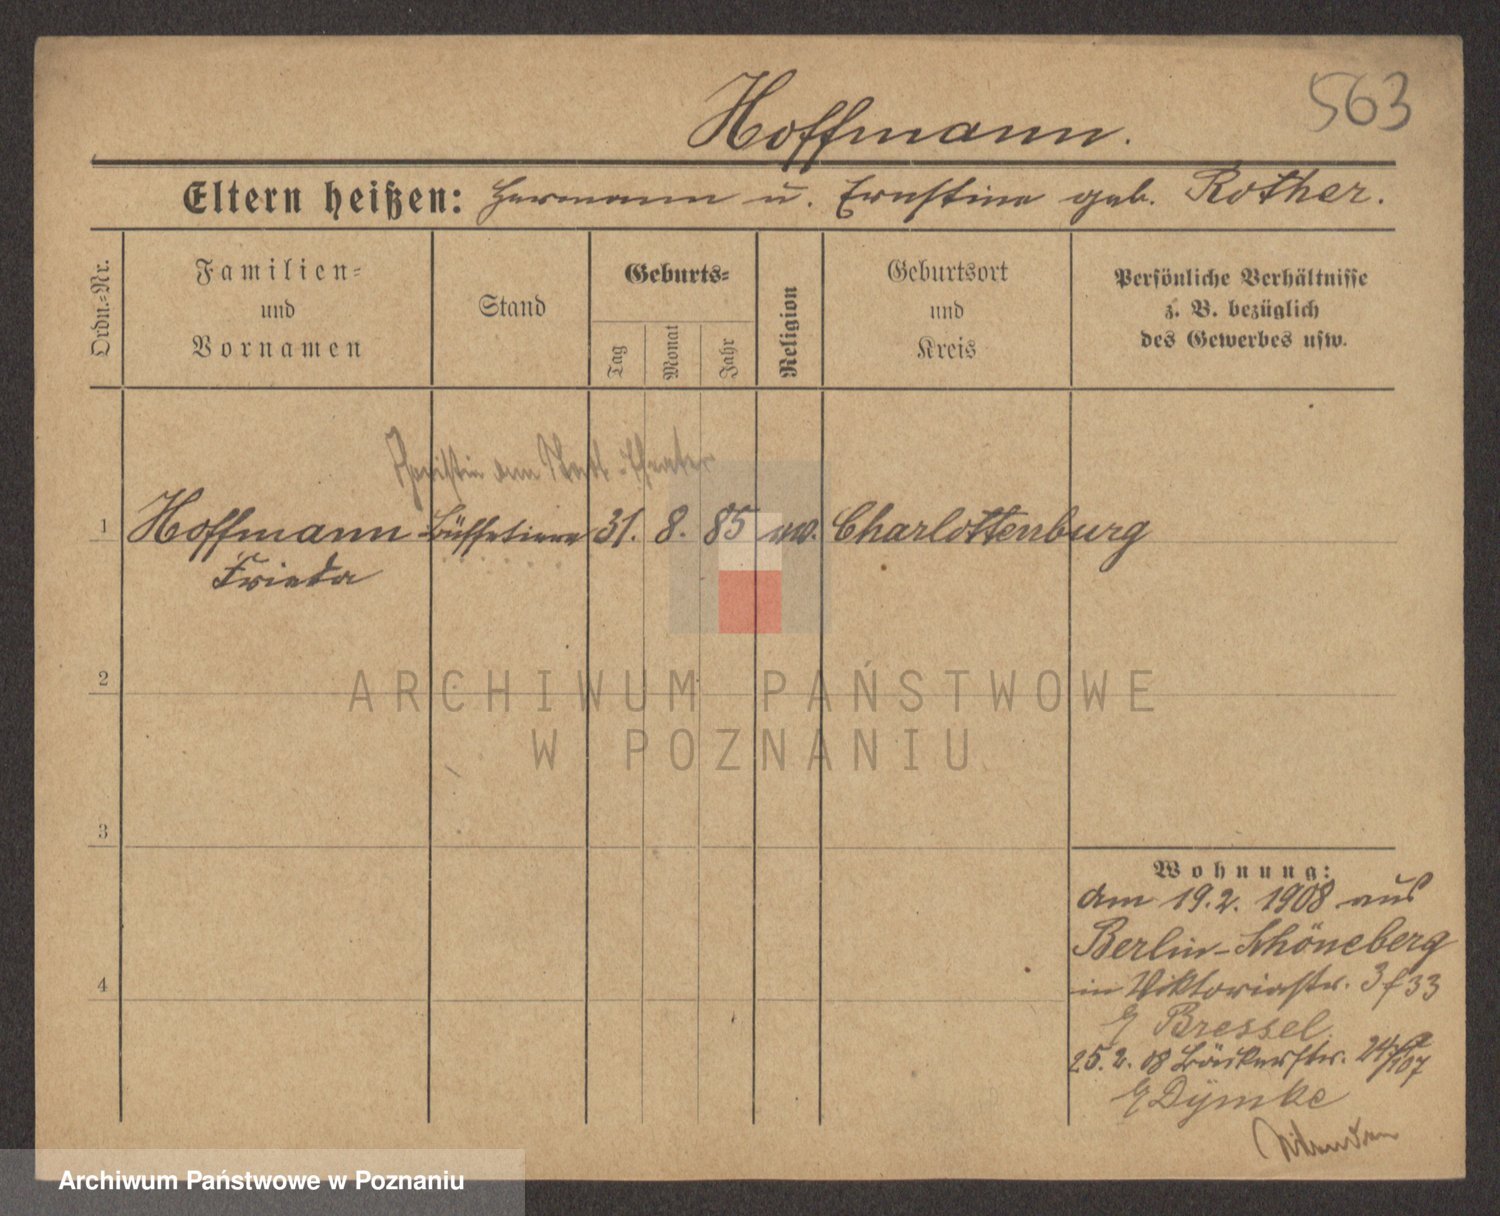 563
Hoffmann.
Eltern heißen: Hermann u. Ernstine geb. Rother.
Ordn.-Nr.
Familien-
und
Vornamen
Stand
Geburts-
Tag
Monat
Jahr
Religion
Geburtsort
und
Kreis
Persönliche Verhältnisse
z. B. bezüglich
des Gewerbes usw.
am Stadt-Theater
1 Hoffmann Büffetiere 31. 8. 85 ev. Charlottenburg
Frieda
2
3
4
ARCHIWUM PAŃSTWOWE
W POZNANIU
Wohnung:
am 19.2. 1908 aus
Berlin-Schöneberg
in Viktoriastr. 33
Bressel.
25.2. 08 Bäckerstr. 24
Dymke
Archiwum Państwowe w Poznaniu